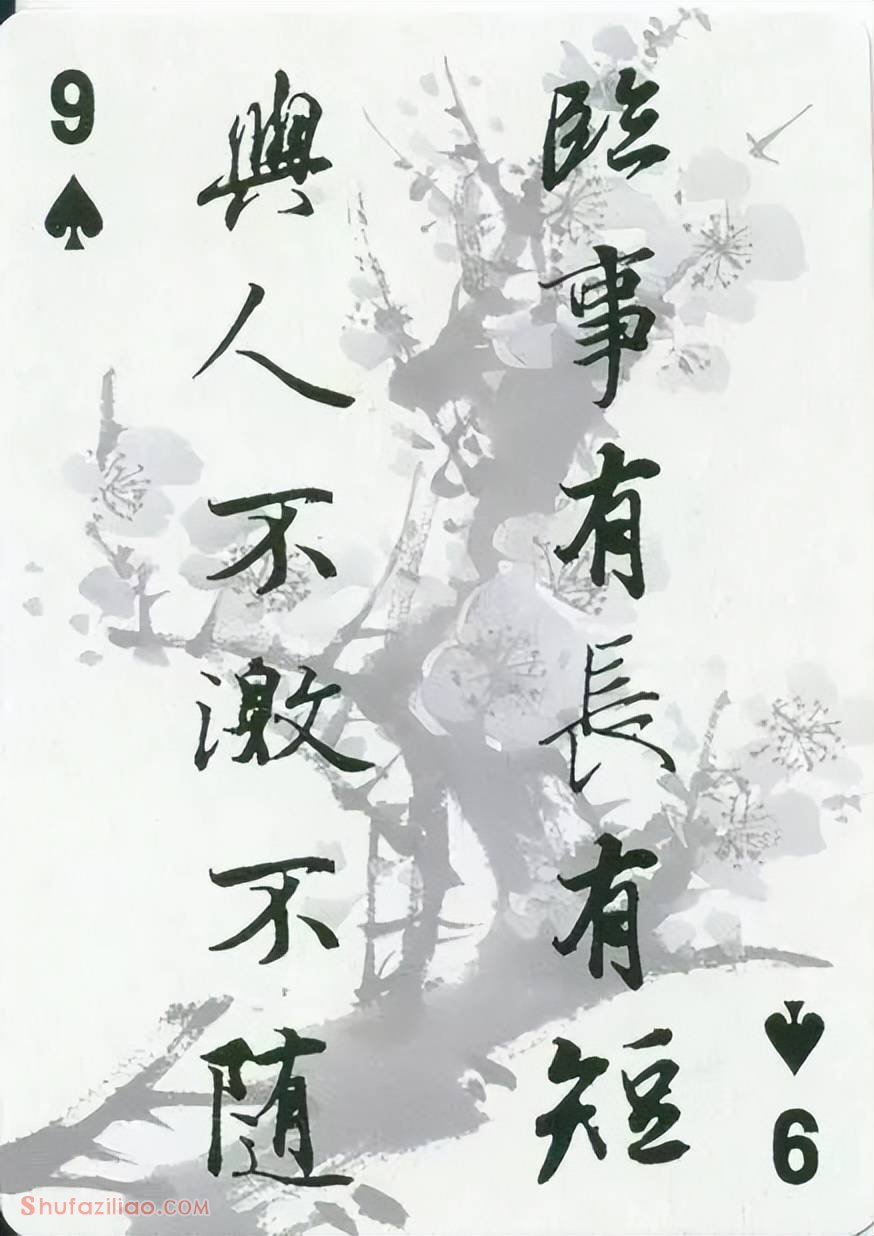 9
臨事有長有短
與人不激不随
9
Shufaziliao.com